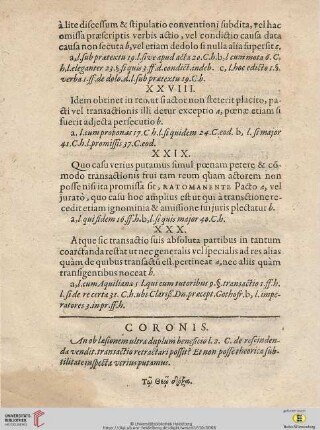 à lite discessum & stipulatio conventioni subdita, vel hac
omissa præscriptis verbis actio, vel condictio causa data
causa non secuta b, vel etiam de dolo si nulla alia supersit c,
a, l. sub prætextu 19. l. sive apud acta 20. C. h. b, l. cum mota 6. C.
h. l. eleganter 23. §. si quis 3. ff. d. condict. indeb. c, l. hoc edicto 1. §.
verba 1. ff. de dolo. d. l. sub prætextu 19. C. h.
XXVIII.
Idem obtinet in reo, ut si actor non steterit placito, pa-
cti vel transactionis illi detur exceptio a, pœnæ etiam si
fuerit adjecta persecutio b.
a, l. cum proponas 17. C h. l. si quidem 24. C. eod. b, l. si major
41. C. h. l. promissis 37. C. eod.
XXIX.
Quo casu verius putamus simul pœnam petere & cō-
modo transactionis frui tam reum quam actorem non
posse nisi ita promissa sit, RATO MANENTE PACTO a, vel
jurato, quo casu hoc amplius est ut qui à transactione re-
cedit etiam ignominia & amissione sui juris plectatur b.
a, l. qui fidem 16. ff. h. b, l. si quis major 40. C. h.
XXX.
Atque sic transactio suis absoluta partibus in tantum
coarctanda restat ut nec generalis vel specialis ad res alias
quàm de quibus transactū est. pertineat a, nec aliis quàm
transigentibus noceat b.
a, l. cum Aquiliana 5. l. qui cum tutoribus 9. §. transactio 1. ff. h.
l. si de certa 31. C. h. ubi Clariss. Dn. præcept. Gothofr. b, l. impe-
ratores 3. in pr. ff. h.
CORONIS.
An ob læsionem ultra duplum beneficio l. 2. C. de rescinden-
da vendit. transactio retractari possit? Et non posse theorica sub-
tilitate inspecta verius putamus.
Τῷ Θεῷ δόξα.
UNIVERSITÄTS-
BIBLIOTHEK
HEIDELBERG
© Universitätsbibliothek Heidelberg
Baden-Württemberg